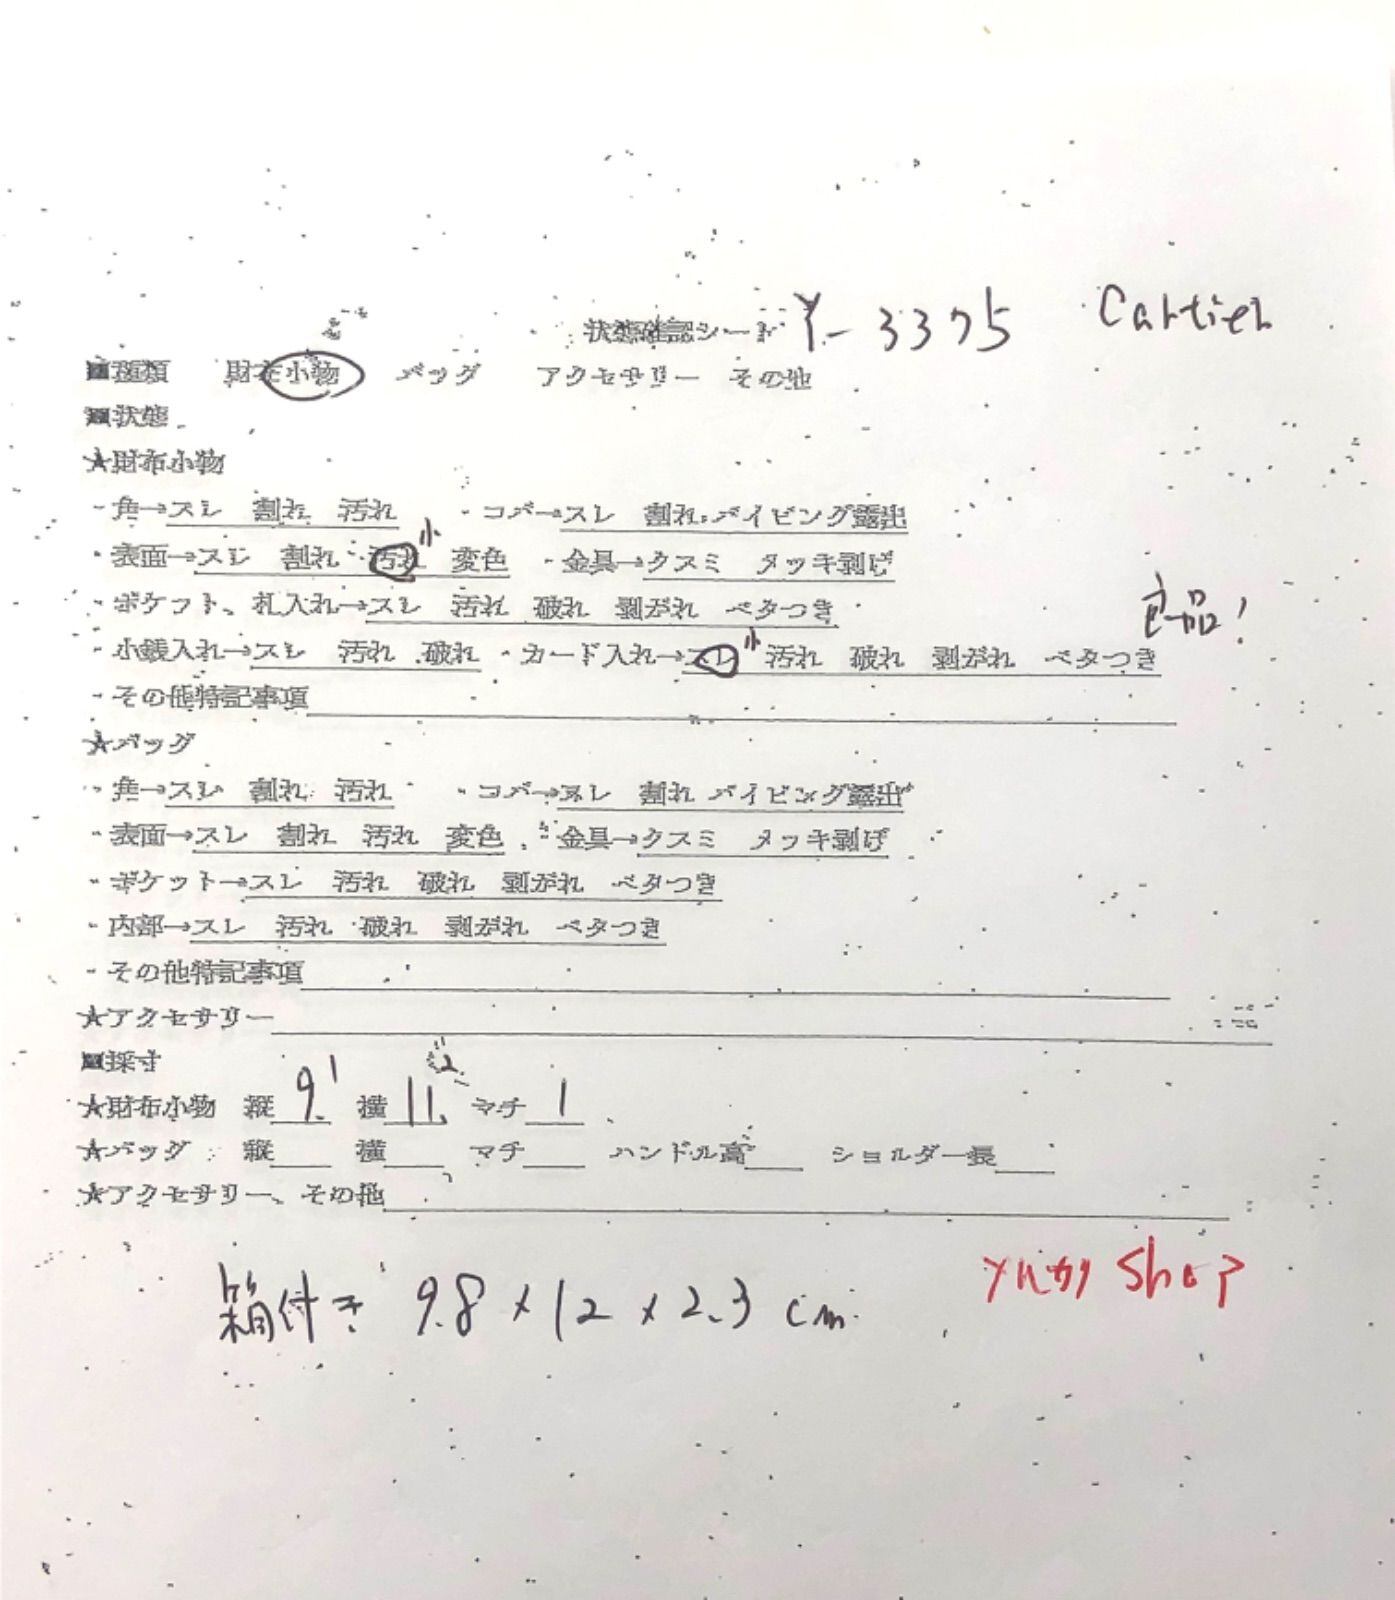 状態確認シート Y-3375 Cartier
■種類 財布小物 バッグ アクセサリー その他
■状態
★財布小物
・角→スレ 割れ 汚れ ・コバ→スレ 割れ パイピング露出
・表面→スレ 割れ 汚れ 小 変色 ・金具→クスミ メッキ剥げ
・ポケット、札入れ→スレ 汚れ 破れ 剥がれ ベタつき
良品!
・小銭入れ→スレ 汚れ 破れ ・カード入れ→スレ 小 汚れ 破れ 剥がれ ベタつき
・その他特記事項
★バッグ
・角→スレ 割れ 汚れ ・コバ→スレ 割れ パイピング露出
・表面→スレ 割れ 汚れ 変色 ・金具→クスミ メッキ剥げ
・ポケット→スレ 汚れ 破れ 剥がれ ベタつき
・内部→スレ 汚れ 破れ 剥がれ ベタつき
・その他特記事項
★アクセサリー
■採寸
★財布小物 縦 9.1 横 11.2 マチ 1
★バッグ 縦 横 マチ ハンドル高 ショルダー長
★アクセサリー、その他
Shop
箱付き 9.8×12×2.3cm